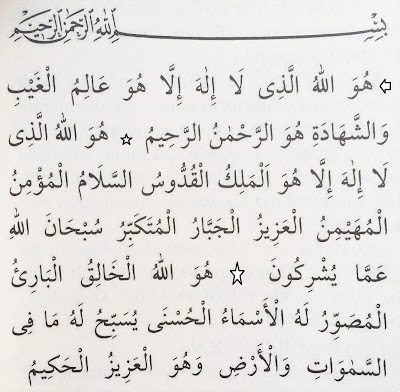 بِسْمِ اللهِ الرَّحْمٰنِ الرَّحِيْمِ
هُوَ اللهُ الَّذِى لَا إِلٰهَ إِلَّا هُوَ عَالِمُ الْغَيْبِ
وَالشَّهَادَةِ هُوَ الرَّحْمٰنُ الرَّحِيمُ ☆ هُوَ اللهُ الَّذِى
لَا إِلٰهَ إِلَّا هُوَ اَلْمَلِكُ الْقُدُّوسُ السَّلَامُ الْمُؤْمِنُ
الْمُهَيْمِنُ الْعَزِيزُ الْجَبَّارُ الْمُتَكَبِّرُ سُبْحَانَ اللهِ
عَمَّا يُشْرِكُونَ ☆ هُوَ اللهُ الْخَالِقُ الْبَارِئُ
الْمُصَوِّرُ لَهُ الْأَسْمَاءُ الْحُسْنَى يُسَبِّحُ لَهُ مَا فِى
السَّمٰوَاتِ وَالْأَرْضِ وَهُوَ الْعَزِيزُ الْحَكِيمُ